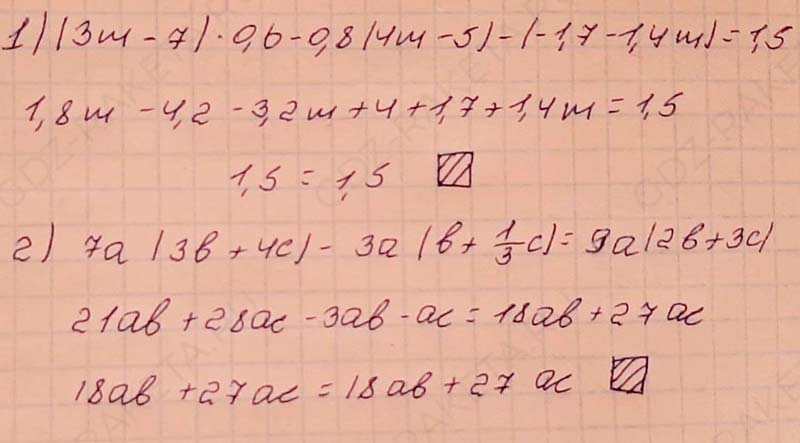 1) (3m - 7) · 0,6 - 0,8(4m - 5) - (-1,7 - 1,4m) = 1,5
1,8m - 4,2 - 3,2m + 4 + 1,7 + 1,4m = 1,5
1,5 = 1,5
2) 7a (3b + 4c) - 3a (b + 1/3 c) = 9a(2b + 3c)
21ab + 28ac - 3ab - ac = 18ab + 27ac
18ab + 27ac = 18ab + 27 ac